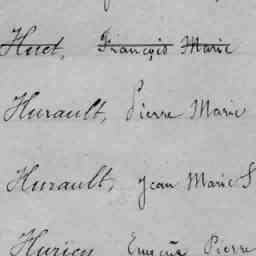 Huet, François Marie
Hurault, Pierre Marie
Hurault, Jean Marie S
Pierre